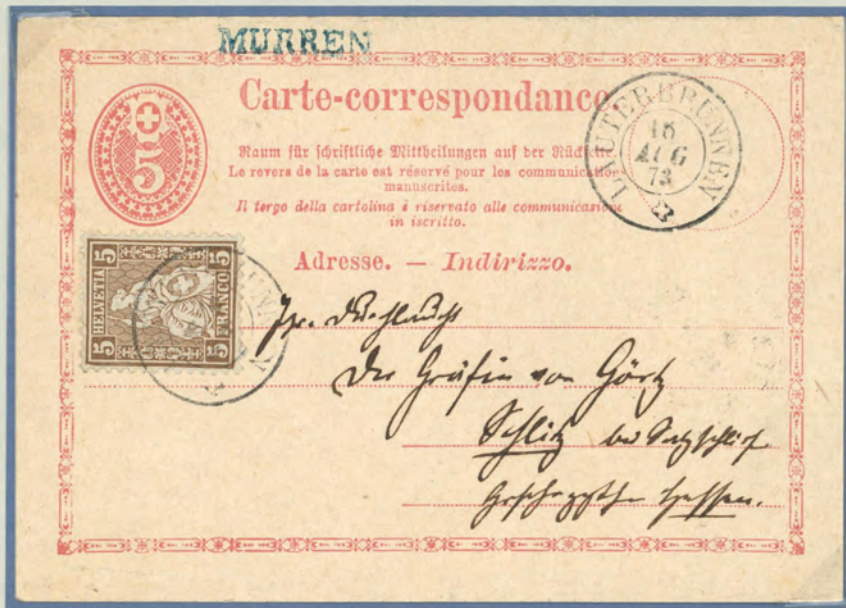 MURREN
5
Carte-correspondance.
Raum für schriftliche Mittheilungen auf der
Le revers de la carte est réservé pour les communications
manuscrites.
Il tergo della cartolina è riservato alle communicazioni
in iscritto.
LAUTERBRUNNEN
16
AUG
73
Adresse. — Indirizzo.
5 HELVETIA 5
5 FRANCO 5
Durchlaucht
Der Gräfin von Görtz
Schlitz bei Salzschlirf
Hessen.